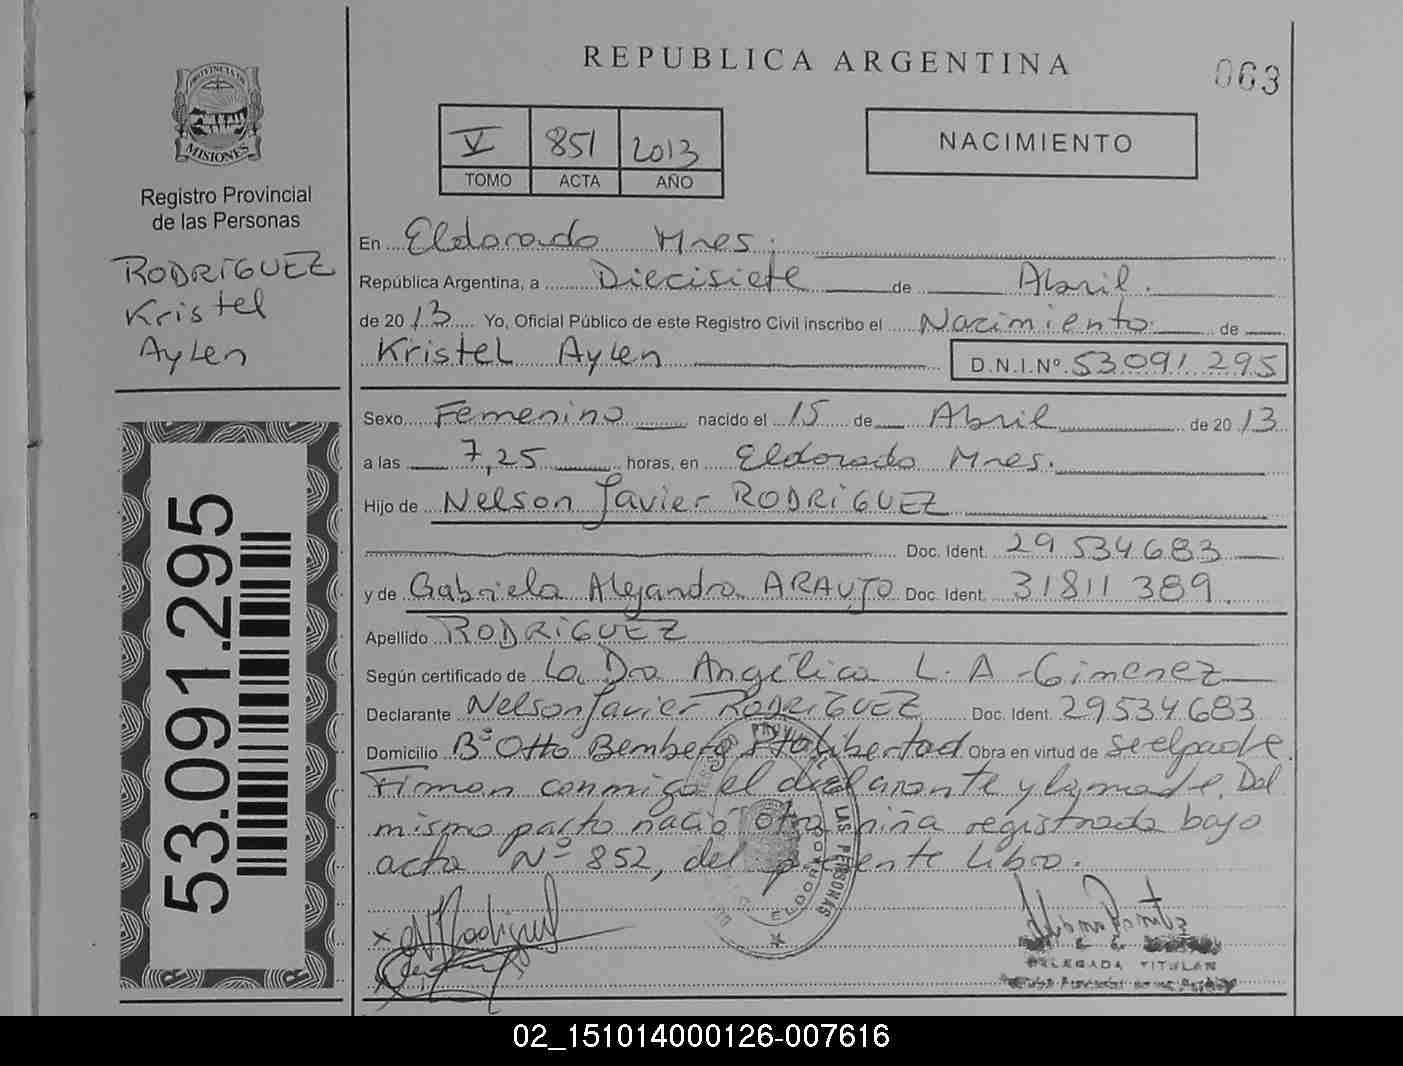 REPUBLICA ARGENTINA
063
PROVINCIA DE
MISIONES
Registro Provincial
de las Personas
RODRIGUEZ
Kristel
Aylen
V 851 2013
TOMO ACTA AÑO
NACIMIENTO
En Eldorado Mnes.
República Argentina, a Diecisiete de Abril.
de 2013 Yo, Oficial Público de este Registro Civil inscribo el Nacimiento de
Kristel Aylen D.N.I.Nº 53.091.295
Sexo Femenino nacido el 15 de Abril de 2013
a las 7,25 horas, en Eldorado Mnes.
Hijo de Nelson Javier RODRIGUEZ
Doc. Ident. 29 534 683
y de Gabriela Alejandra ARAUJO Doc. Ident. 31811 389.
Apellido RODRIGUEZ
Según certificado de La Dra Angélica L. A - Gimenez
Declarante Nelson Javier RODRIGUEZ Doc. Ident. 29534683
Domicilio Bº Otto Bemberg Pto Libertad Obra en virtud de ser el padre.
Firman conmigo el declarante y la madre. Del
mismo parto nació otra niña registrada bajo
acta Nº 852, del presente Libro.
53.091.295
PROVINCIAL DE LAS PERSONAS
ELDORADO
DELEGADA TITULAR
02_151014000126-007616